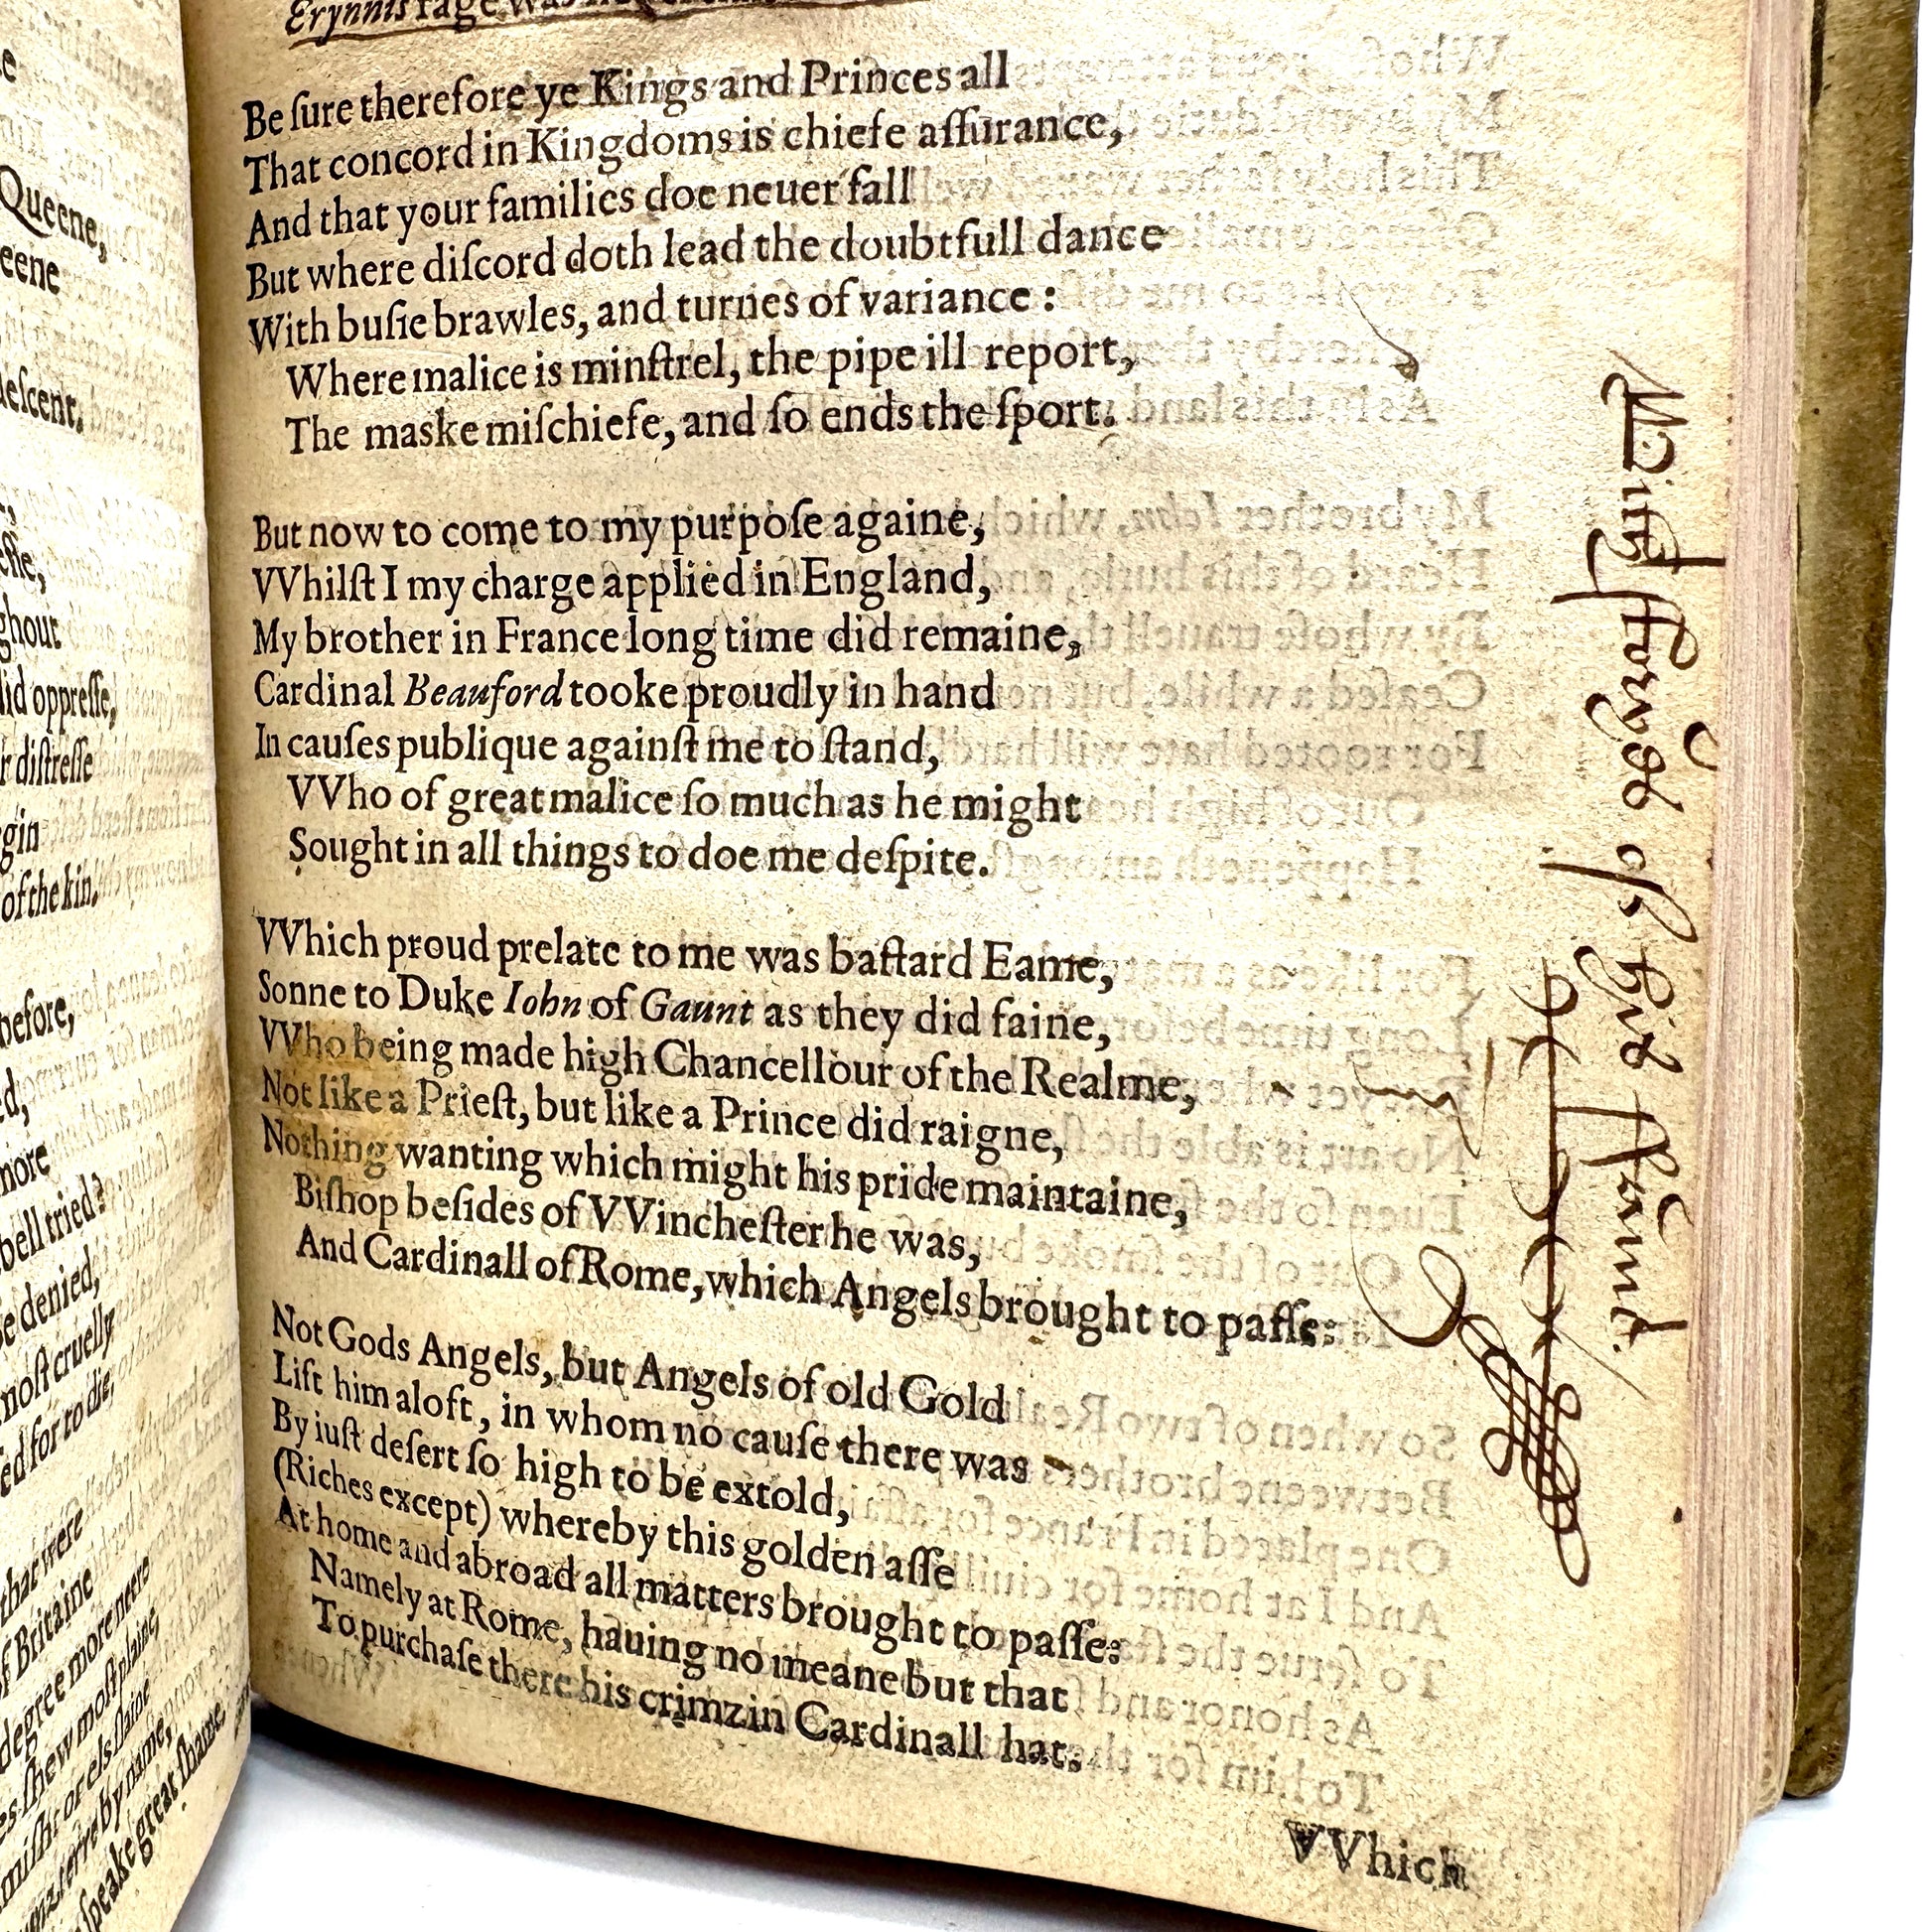 Queene,
eene
descent,
ghout
did oppresse,
r distresse
gin
of the kin,
before,
more
bell tried?
e denied,
most cruelly
ed for to die,
that were
of Britaine
degree more neere
es shew most plaine,
or els slaine
by name,
speake great shame
Erynnis rage was
Be ſure therefore ye Kings and Princes all
That concord in Kingdoms is chiefe aſſurance,
And that your families doe neuer fall
But where diſcord doth lead the doubtfull dance
With buſie brawles, and turnes of variance :
Where malice is minſtrel, the pipe ill report,
The maske miſchiefe, and ſo ends the ſport.
But now to come to my purpoſe againe,
VVhilſt I my charge applied in England,
My brother in France long time did remaine,
Cardinal Beauford tooke proudly in hand
In cauſes publique againſt me to ſtand,
VVho of great malice ſo much as he might
Sought in all things to doe me deſpite.
VVhich proud prelate to me was baſtard Eame,
Sonne to Duke Iohn of Gaunt as they did faine,
VVho being made high Chancellour of the Realme,
Not like a Prieſt, but like a Prince did raigne,
Nothing wanting which might his pride maintaine,
Biſhop beſides of VVincheſter he was,
And Cardinall of Rome, which Angels brought to paſſe:
Not Gods Angels, but Angels of old Gold
Lift him aloft, in whom no cauſe there was
By iuſt deſert ſo high to be extold,
(Riches except) whereby this golden aſſe
At home and abroad all matters brought to paſſe:
Namely at Rome, hauing no meane but that
To purchaſe there his crimzin Cardinall hat.
VVhich
of his